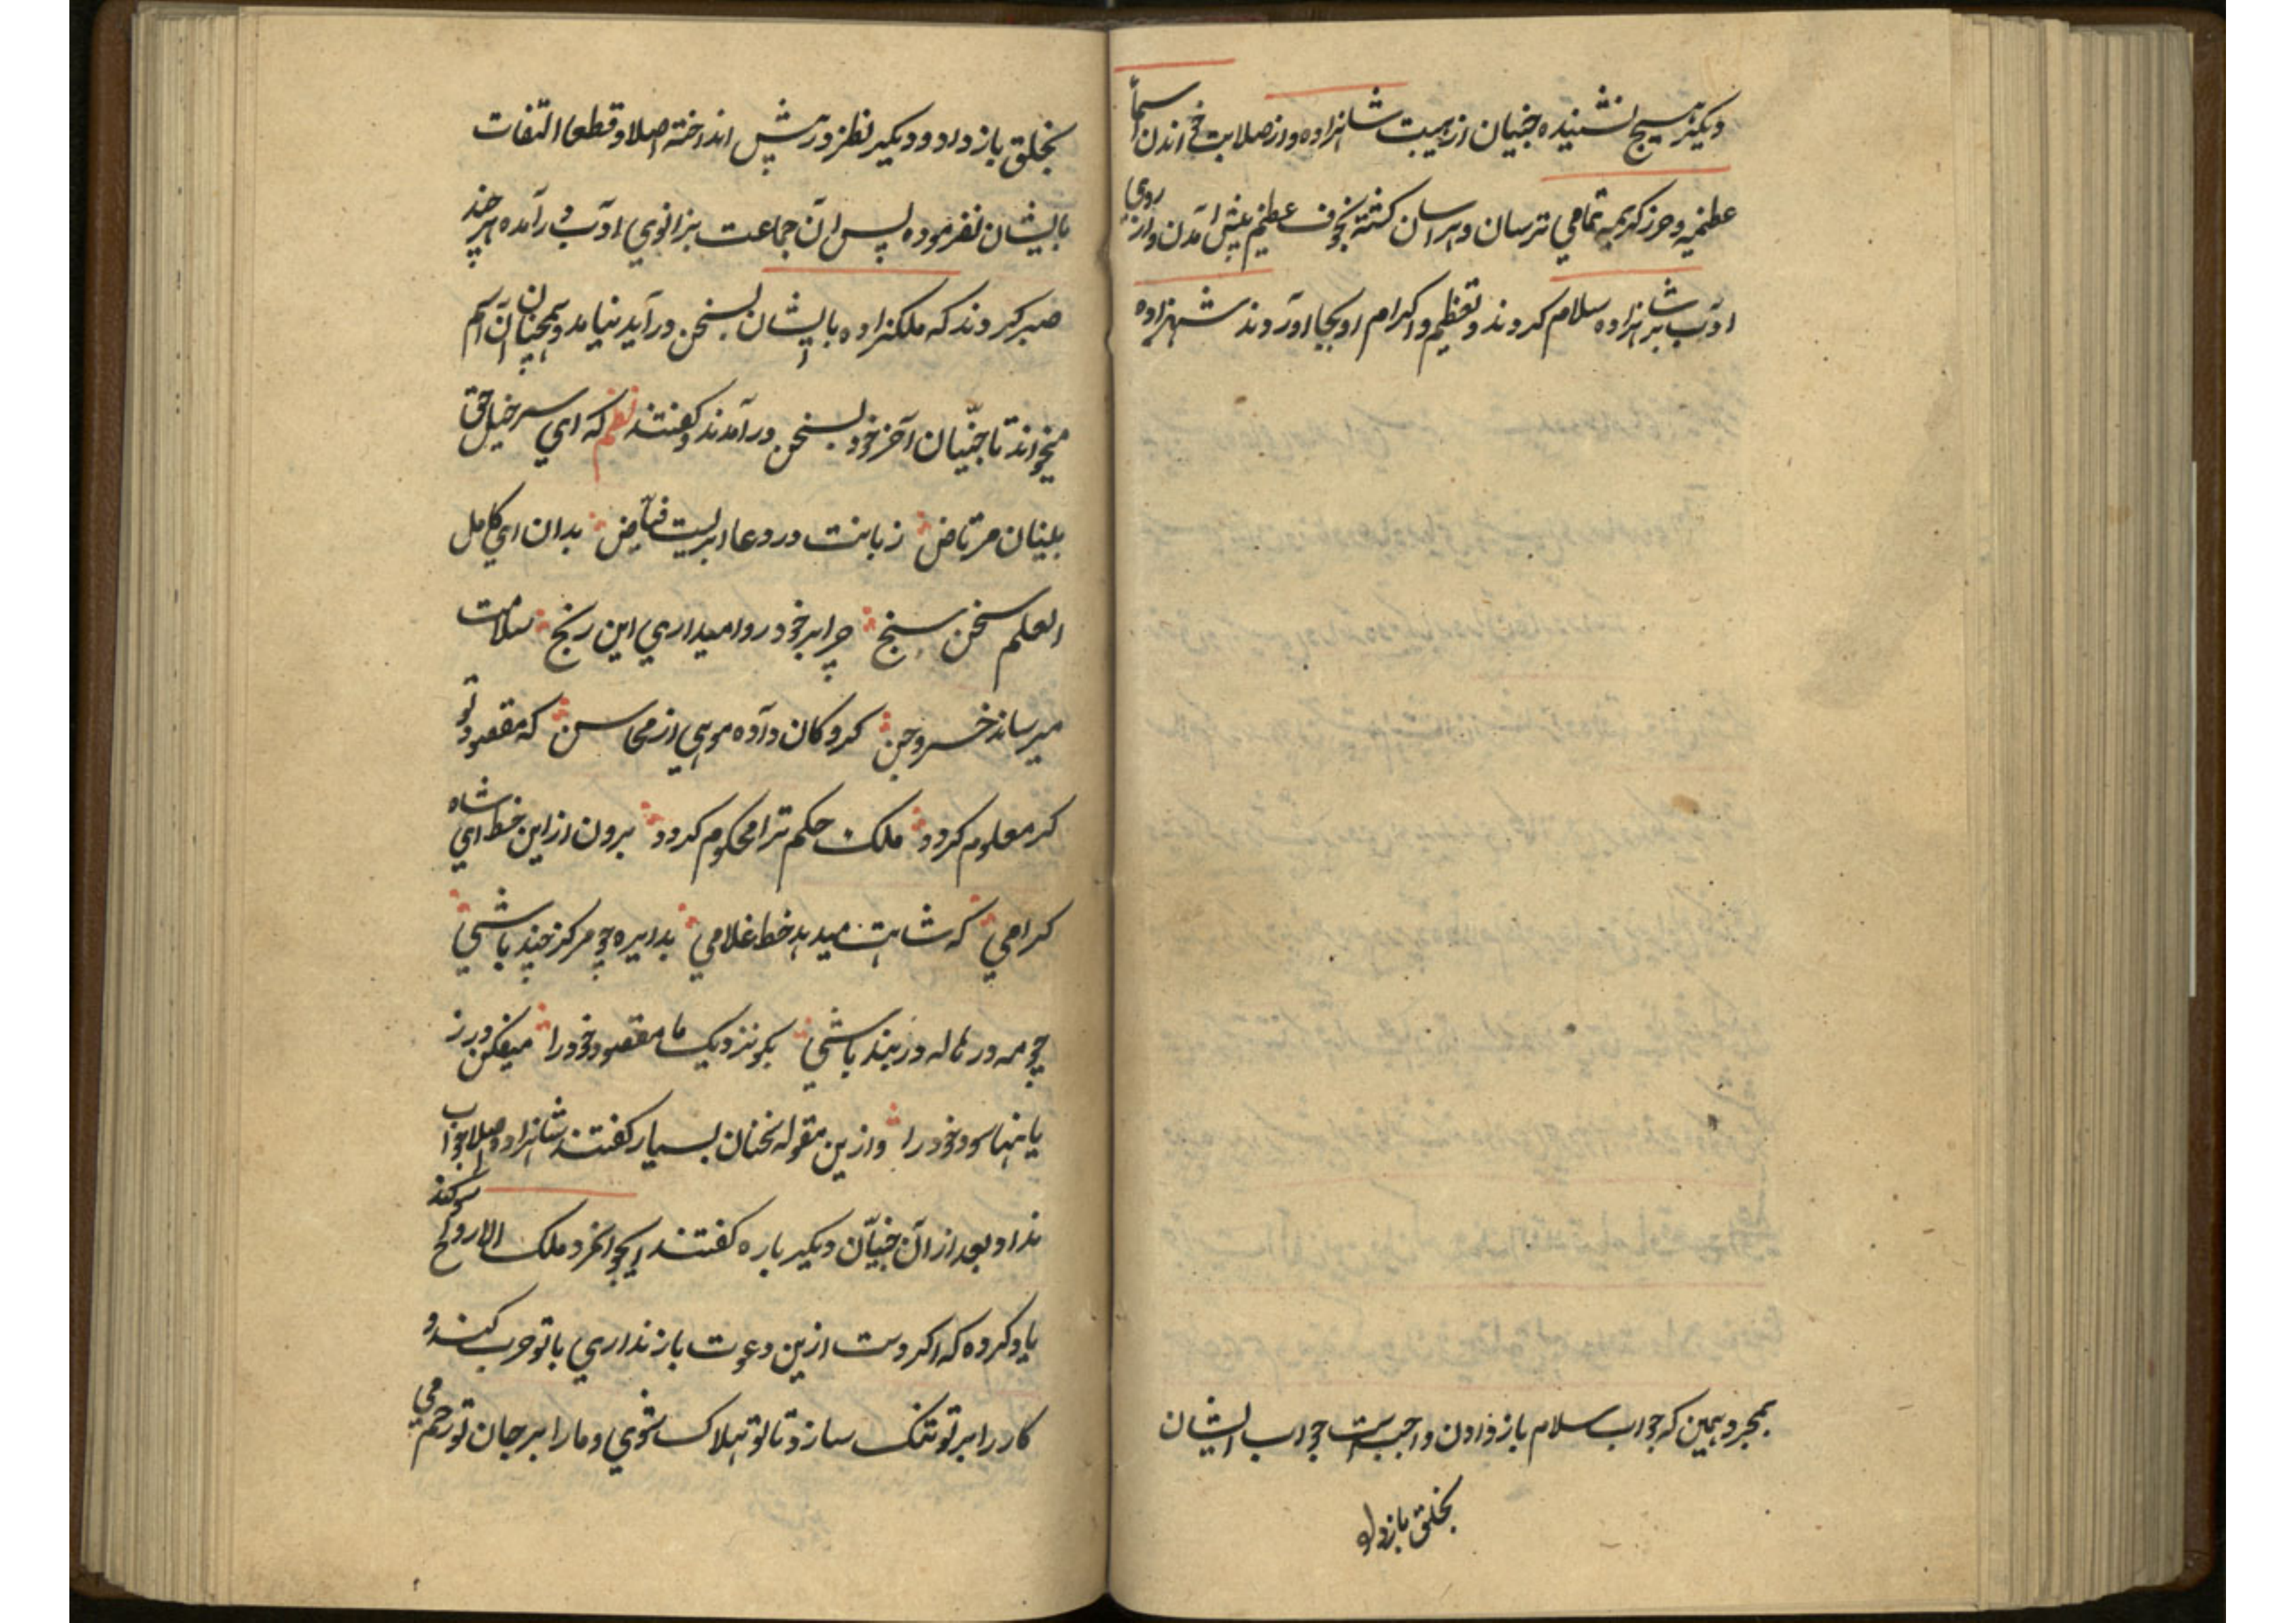 دیکر هیچ نشنیده جنیان از هیبت شاهزاده و از صلابت خواندن اسماء
عظمیه و حرز کریمه تمامی ترسان و هراسان کشته بخوف عظیم پیش آمدن و از روی
ادب بر شاهزاده سلام کردند و تعظیم و اکرام او بجا اوردند شهزاده
بمجرد همین که جواب سلام باز دادن واجبست جواب ایشان
بخلق باز داد
بخلق باز داد و دیکیر نظر در پیش انداخته اصلا و قطعا التفات
بایشان نفرموده پس ان جماعت بزانوی ادب در آمده هر چند
صبر کردند که ملکزاده با ایشان بسخن در آید نیامد و همچنان آن اسم
میخواند تا جنّیان آخر خود بسخن در آمدند و کفتند نظم که ای سر خیل حق
بینان مرتاض زبانت در دعا ابریست فیّاض بدان ای کامل
العلم سخن سنج چرا بر خود روا میداری این رنج سلامت
میرساند خسرو جن کروکان داده مویی از محاسن که مقصود تو
کر معلوم کردد ملک حکم ترا محکوم کردد برون از این خط ای شاه
کرامی که شاهت میدهد خط غلامی بدایره چو مرکز چند باشی
چو مه در هاله در بند باشی بکو نزدیک ما مقصود خود را میفکن در ز
یانها سود خود را و ازین مقوله سخنان بسیار کفتند شاهزاده اصلا جواب
نداد بعد از آن جنیّان دیکیر باره کفتند ایجوانمرد ملک الارواح سوکند
یاد کرده که اکر دست ازین دعوت باز نداری با تو حرب کند و
کار را بر تو تنک سازد تا تو هلاک شوی و ما را بر جان تو رحم می